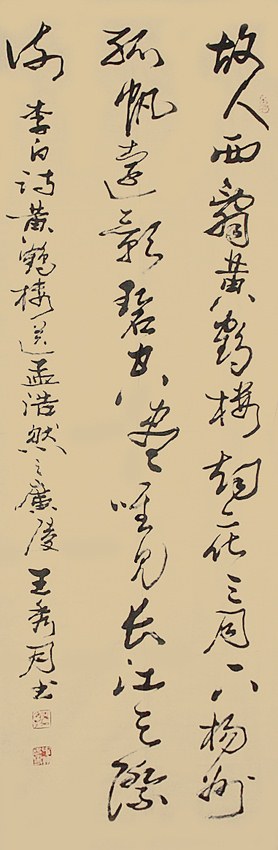 故人西辭黄鶴樓煙花三月下揚州
孤帆遠影碧空盡唯見长江天際
流
李白詩黄鶴樓送孟浩然之廣陵 王秀周书